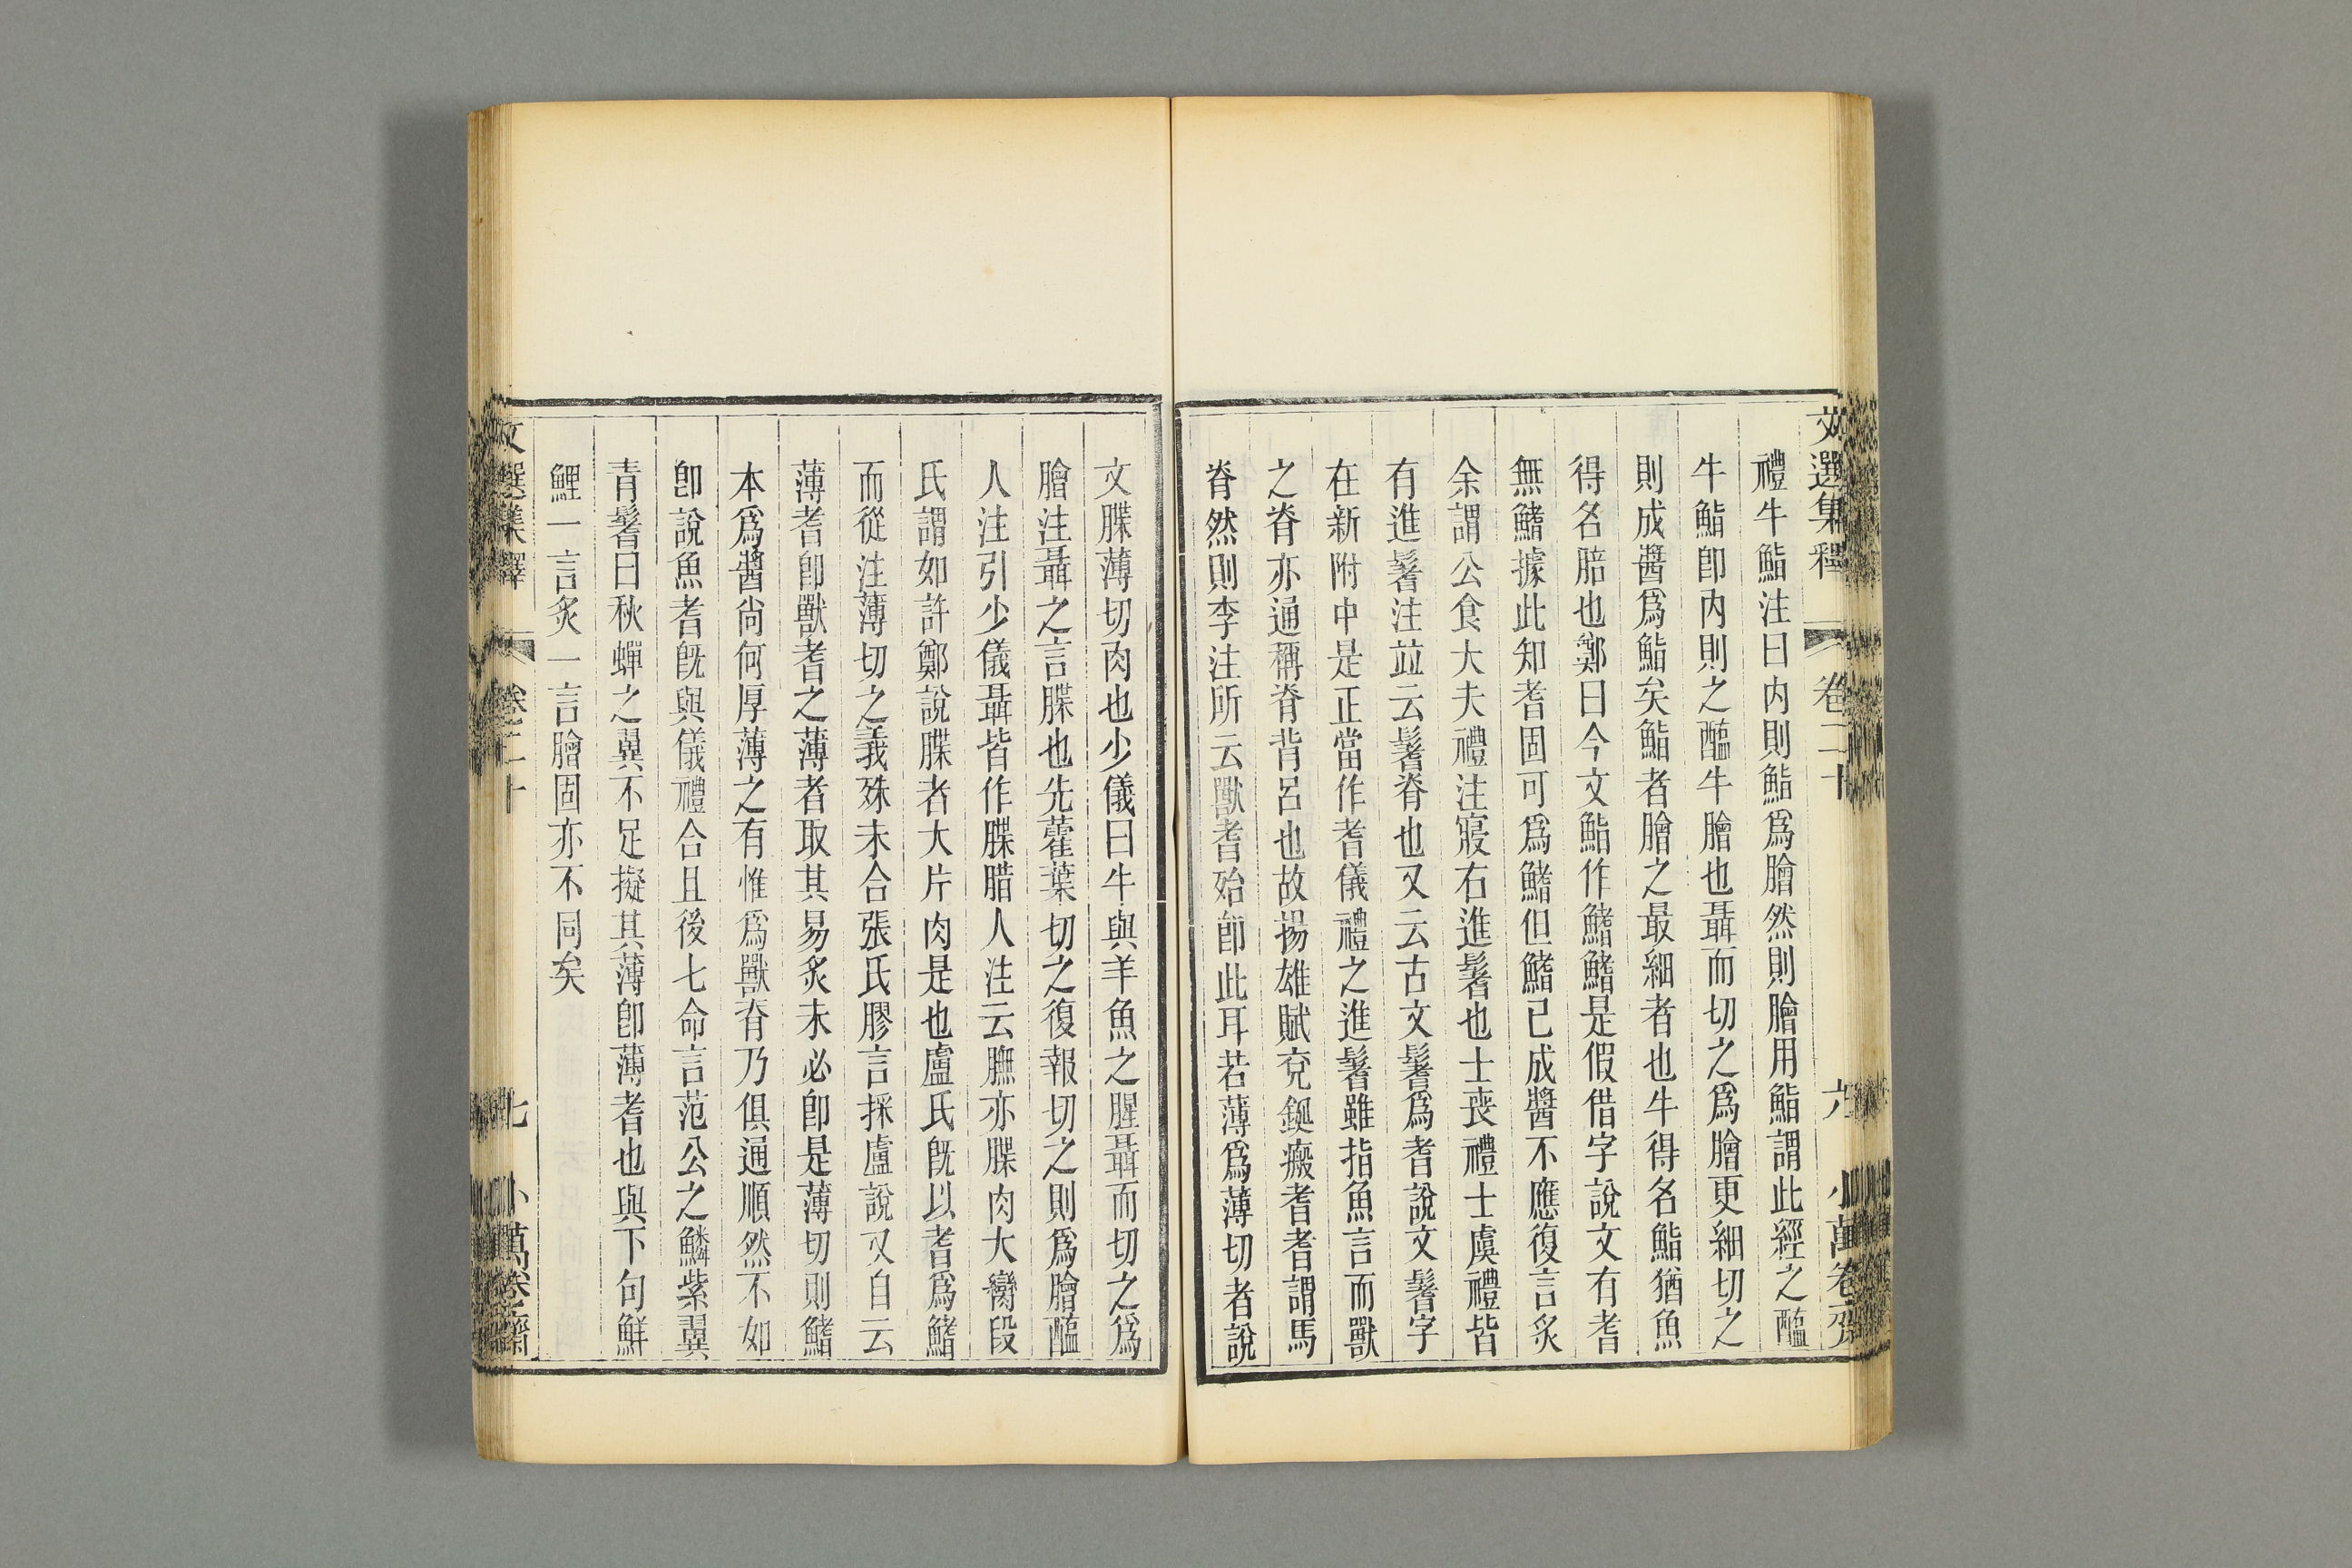 文選集釋 卷二十 六 小萬卷齋
禮牛鮨注曰内則鮨爲膾然則膾用鮨謂此經之醢
牛鮨卽内則之醢牛膾也聶而切之爲膾更細切之
則成醬爲鮨矣鮨者膾之最細者也牛得名鮨猶魚
得名䐑也鄭曰今文鮨作鰭鰭是假借字說文有耆
無鰭據此知耆固可爲鰭但鰭已成醬不應復言炙
余謂公食大夫禮注寢右進鬐也士喪禮士虞禮皆
有進鬐注竝云鬐脊也又云古文鬐爲耆說文鬐字
在新附中是正當作耆儀禮之進鬐雖指魚言而獸
之脊亦通稱脊背呂也故揚雄賦兗鋋瘢耆耆謂馬
脊然則李注所云獸耆殆卽此耳若薄爲薄切者說
文牒薄切肉也少儀曰牛與羊魚之腥聶而切之爲
膾注聶之言牒也先藿葉切之復報切之則爲膾醢
人注引少儀聶皆作牒腊人注云膴亦牒肉大臠段
氏謂如許鄭說牒者大片肉是也盧氏旣以耆爲鰭
而從注薄切之義殊未合張氏膠言採盧說又自云
薄耆卽獸耆之薄者取其易炙未必卽是薄切則鰭
本爲醬尙何厚薄之有惟爲獸脊乃俱通順然不如
卽說魚者旣與儀禮合且後七命言范公之鱗紫翼
青鬐曰秋蟬之翼不足擬其薄卽薄耆也與下句鮮
鯉一言炙一言膾固亦不同矣
文選集釋 卷二十 七 小萬卷齋